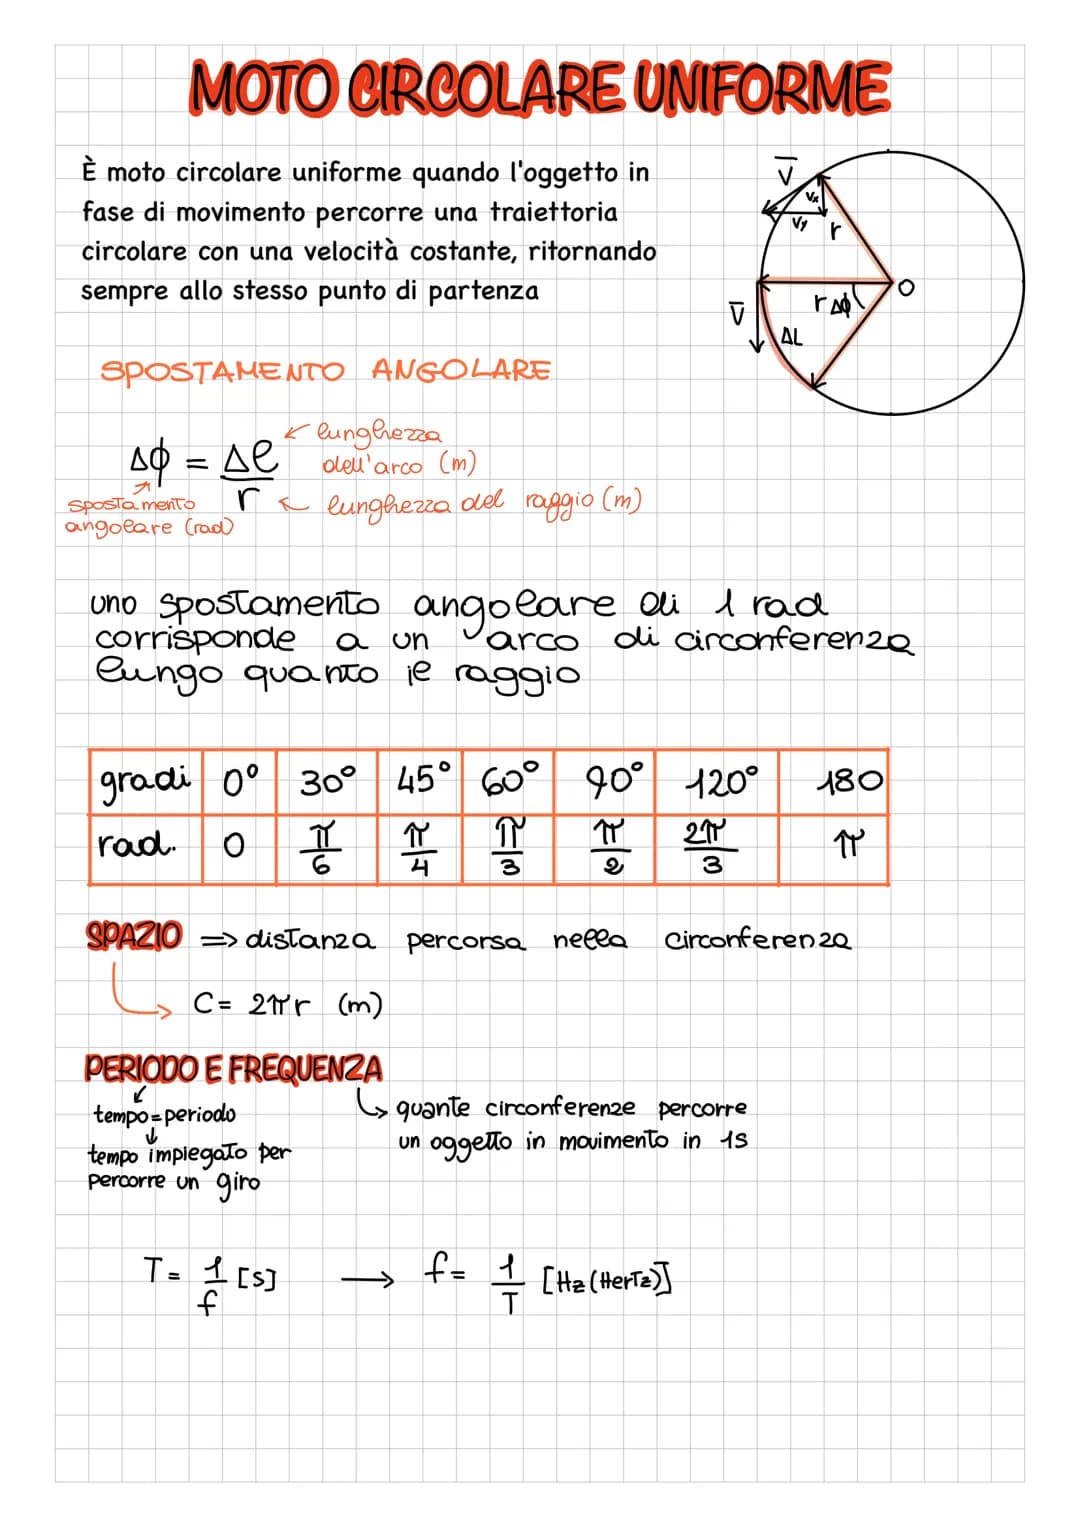 MOTO CIRCOLARE UNIFORME
È moto circolare uniforme quando l'oggetto in
fase di movimento percorre una traiettoria
circolare con una velocità costante, ritornando
sempre allo stesso punto di partenza
V
Vx
Vy
r
O
r Δϕ
V
ΔL
SPOSTAMENTO ANGOLARE
Δϕ = Δl
r
lunghezza
dell'arco (m)
lunghezza del raggio (m)
spostamento
angolare (rad)
uno spostamento angolare di 1 rad
corrisponde a un arco di circonferenza
lungo quanto il raggio
gradi 0° 30° 45° 60° 90° 120° 180
rad. 0 π/6 π/4 π/3 π/2 2π/3 π
SPAZIO => distanza percorsa nella circonferenza
C = 2πr (m)
PERIODO E FREQUENZA
tempo=periodo
tempo impiegato per
percorre un giro
quante circonferenze percorre
un oggetto in movimento in 1s
T = 1/f [s] → f = 1/T [Hz (Hertz)]